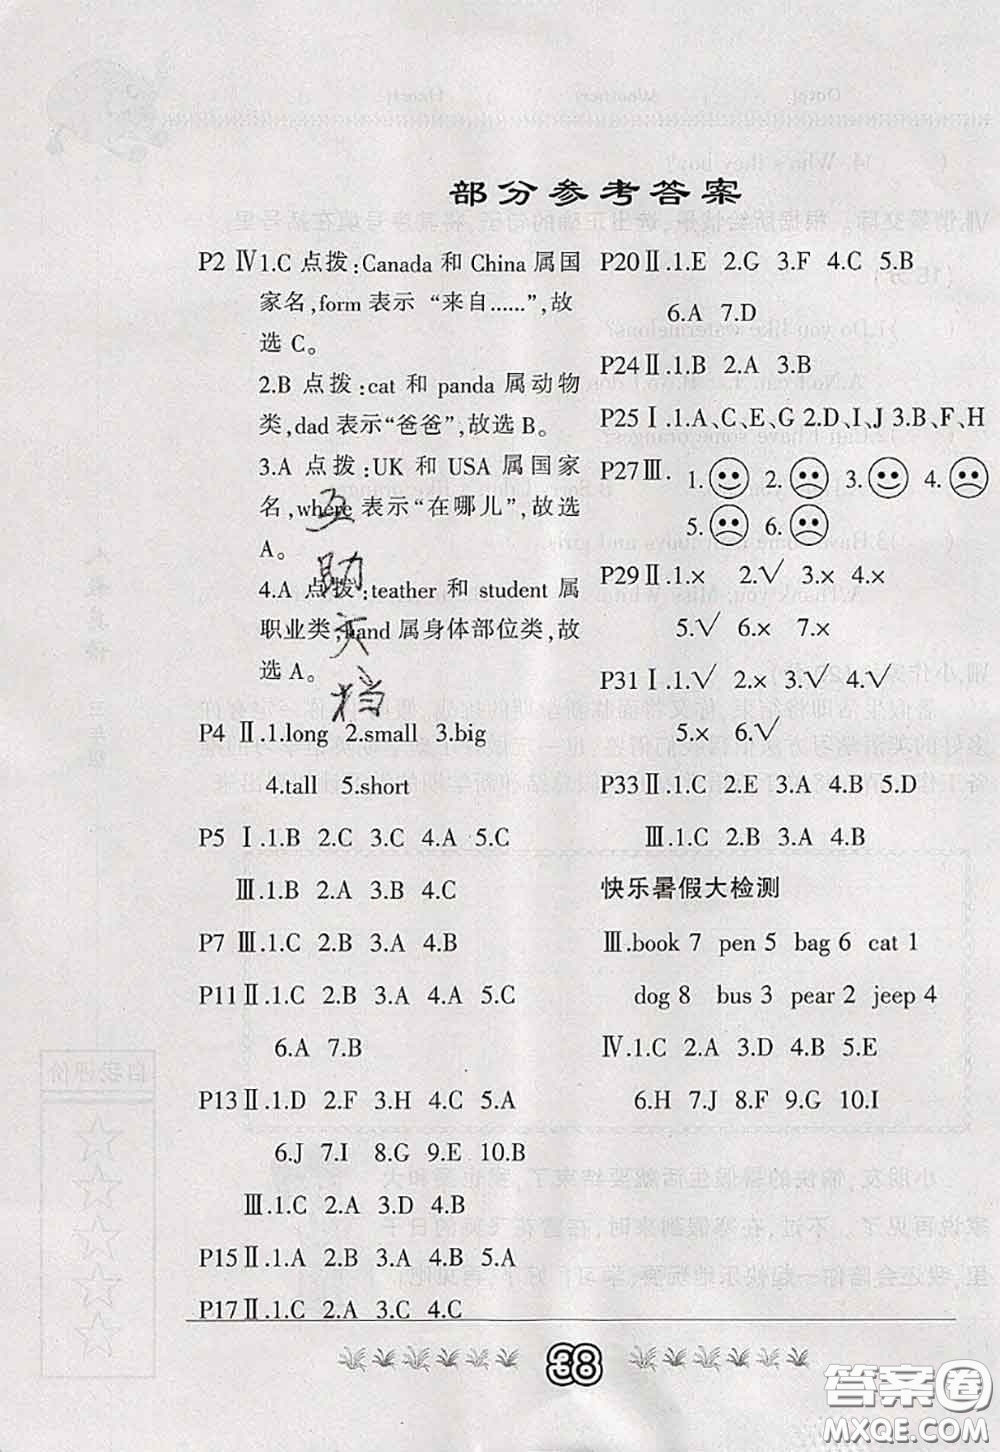 部分参考答案
P2 Ⅳ1.C 点拨:Canada 和 China 属国
家名,form 表示 “来自……”,故
选 C。
2.B 点拨:cat 和 panda 属动物
类,dad 表示“爸爸”,故选 B。
3.A 点拨:UK 和 USA 属国家
名,where 表示“在哪儿”,故选
A。
4.A 点拨:teather 和 student 属
职业类,hand 属身体部位类,故
选 A。
P4 Ⅱ.1.long 2.small 3.big
4.tall 5.short
P5 Ⅰ.1.B 2.C 3.C 4.A 5.C
Ⅲ.1.B 2.A 3.C 4.B
P7 Ⅲ.1.C 2.B 3.A 4.B
P11Ⅱ.1.C 2.B 3.A 4.A 5.C
6.A 7.B
P13Ⅱ.1.D 2.F 3.H 4.C 5.A
6.J 7.I 8.G 9.E 10.B
Ⅲ.1.C 2.A 3.D 4.B
P15Ⅱ.1.A 2.B 3.A 4.B 5.A
P17Ⅱ.1.C 2.A 3.C 4.C
P20Ⅱ.1.E 2.G 3.F 4.C 5.B
6.A 7.D
P24Ⅱ.1.B 2.A 3.B
P25Ⅰ.1.A、C、E、G 2.D、I、J 3.B、F、H
P27Ⅲ. 1. 2. 3. 4.
5. 6.
P29Ⅱ.1.× 2.√ 3.× 4.×
5.√ 6.× 7.×
P31Ⅰ.1.√ 2.× 3.√ 4.√
5.× 6.√
P33Ⅱ.1.C 2.E 3.A 4.B 5.D
Ⅲ.1.C 2.A 3.A 4.B
快乐暑假大检测
Ⅲ.book 7 pen 5 bag 6 cat 1
dog 8 bus 3 pear 2 jeep 4
Ⅳ.1.C 2.A 3.D 4.B 5.E
6.H 7.J 8.F 9.G 10.I
38
答案圈
MXQE.COM